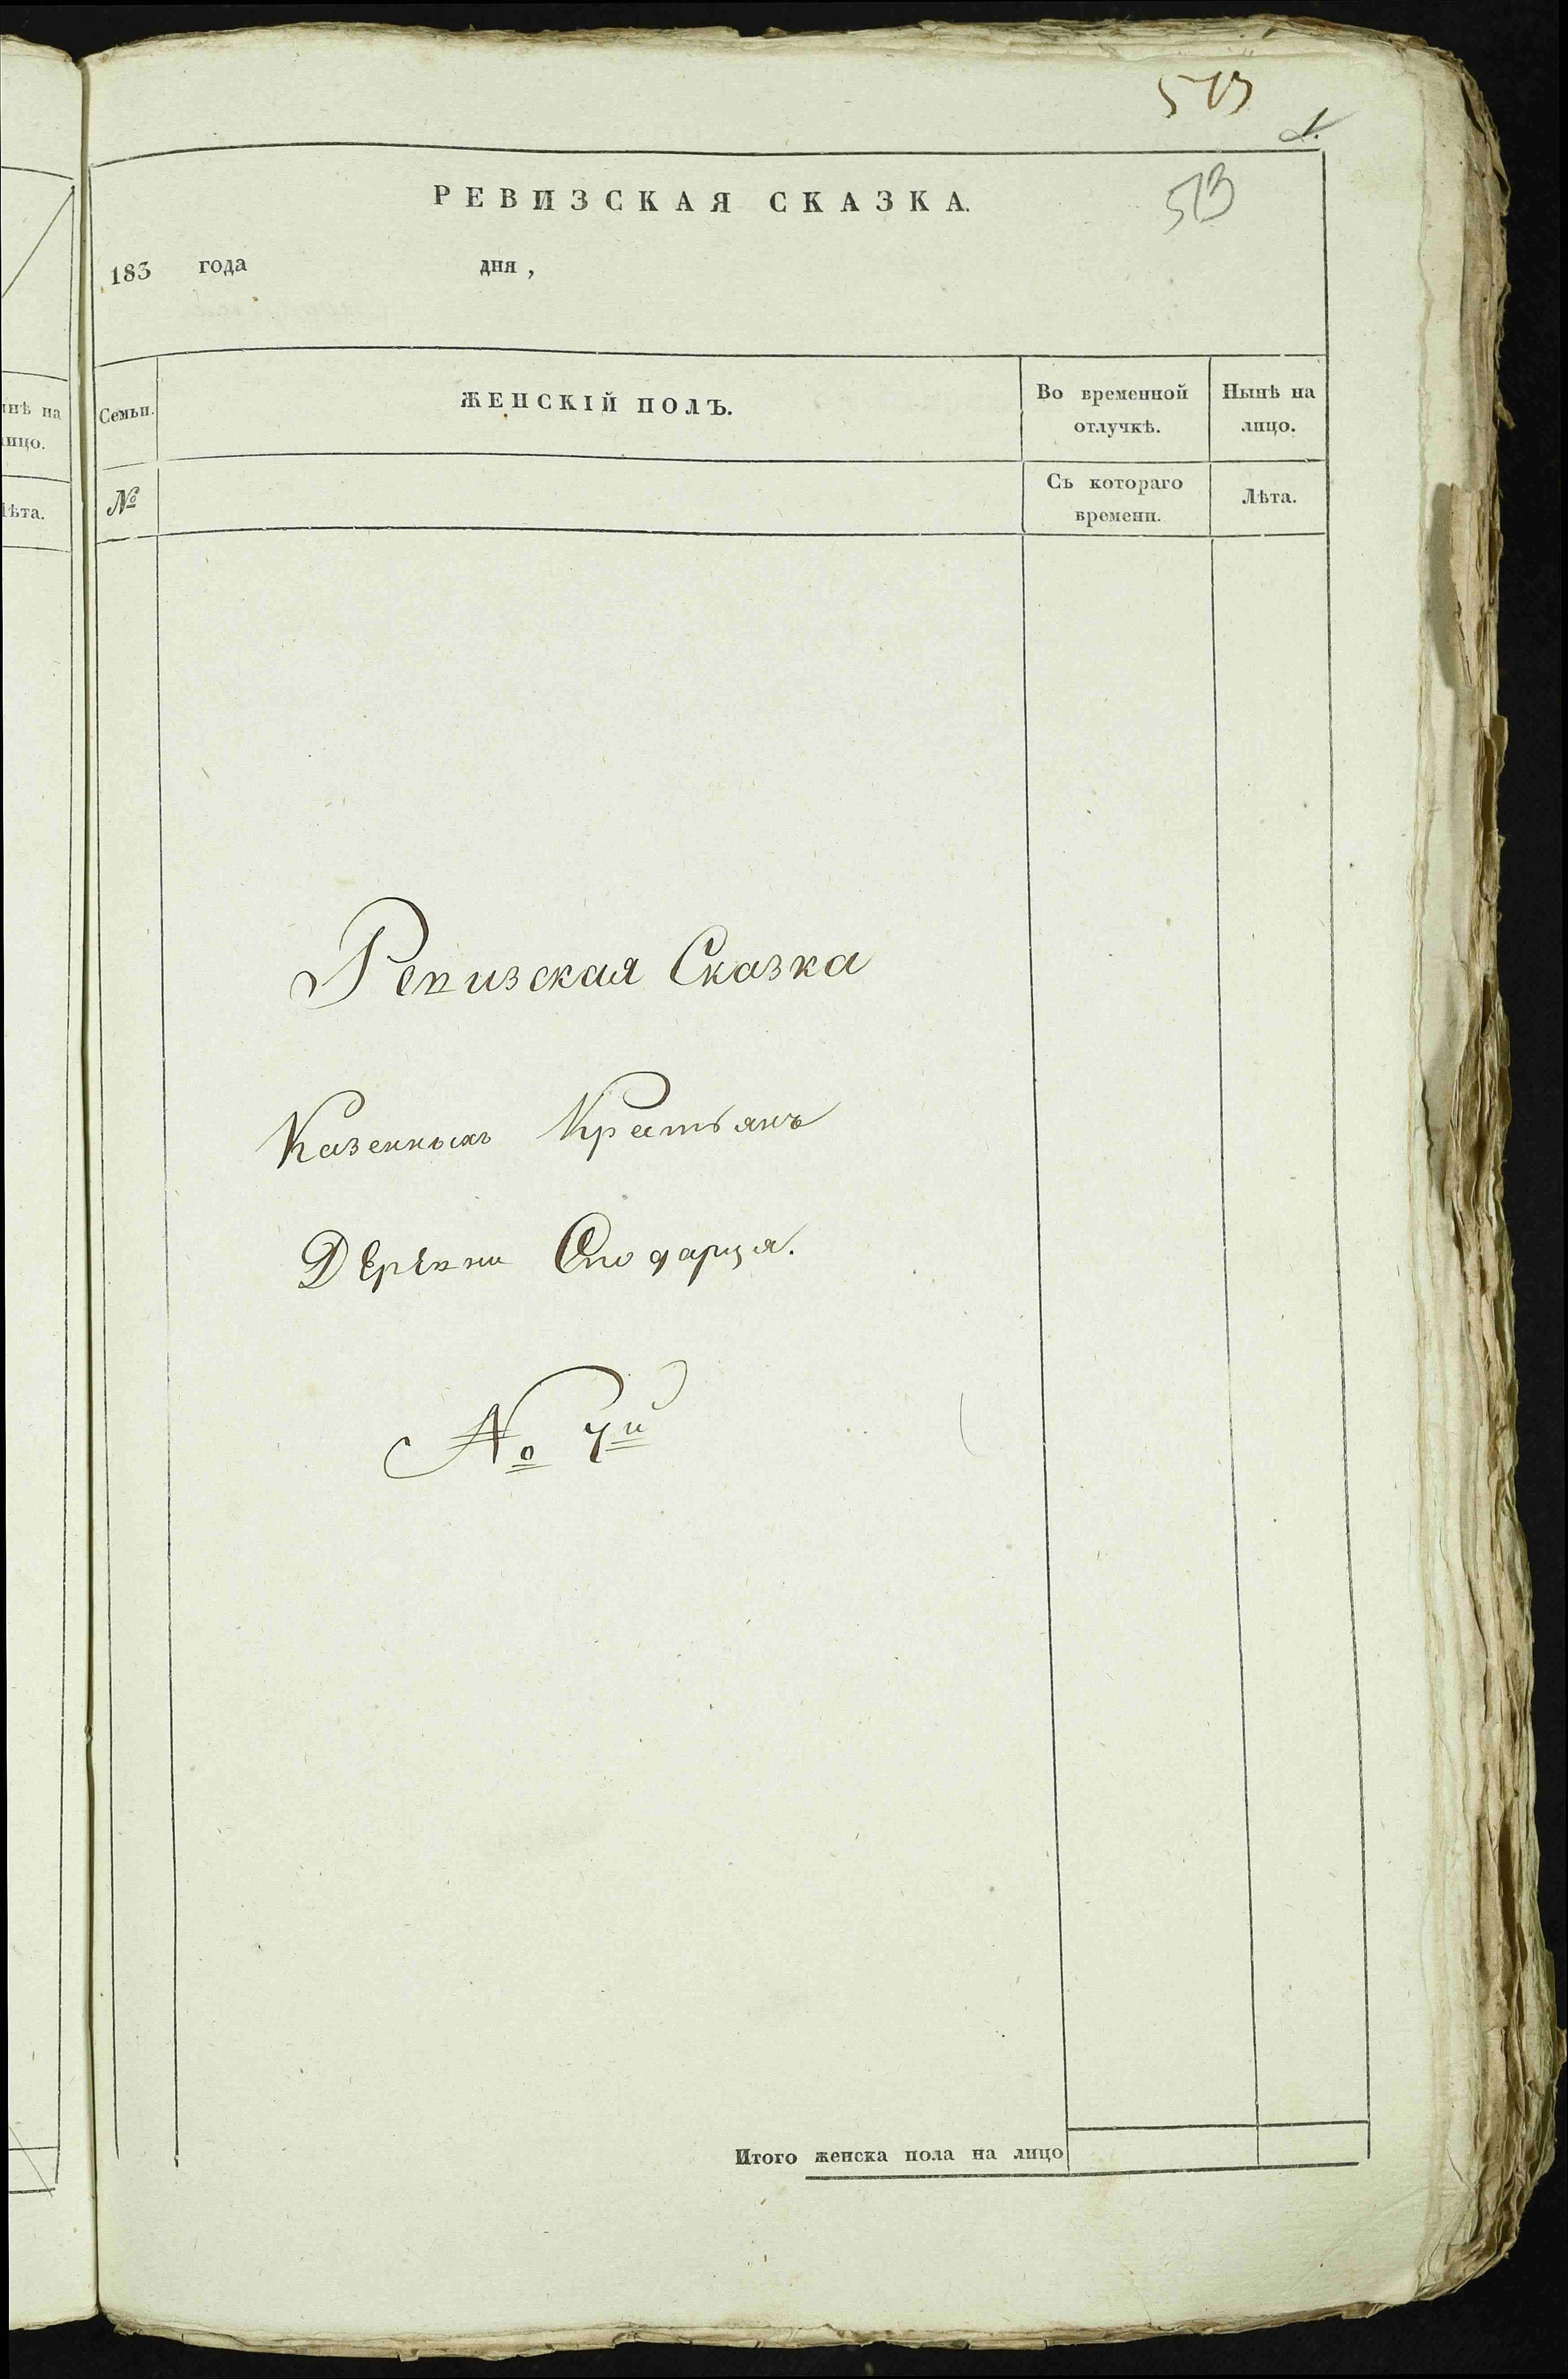 513
1.
РЕВИЗСКАЯ СКАЗКА.
513
183 года дня ,
Семьи.
ЖЕНСКІЙ ПОЛЪ.
Во временной отлучкѣ.
Нынѣ на лицо.
№
Съ котораго времени.
Лѣта.
Ревизская Сказка
Казенныхъ
Деревни
№ 7й
Итого женска пола на лицо